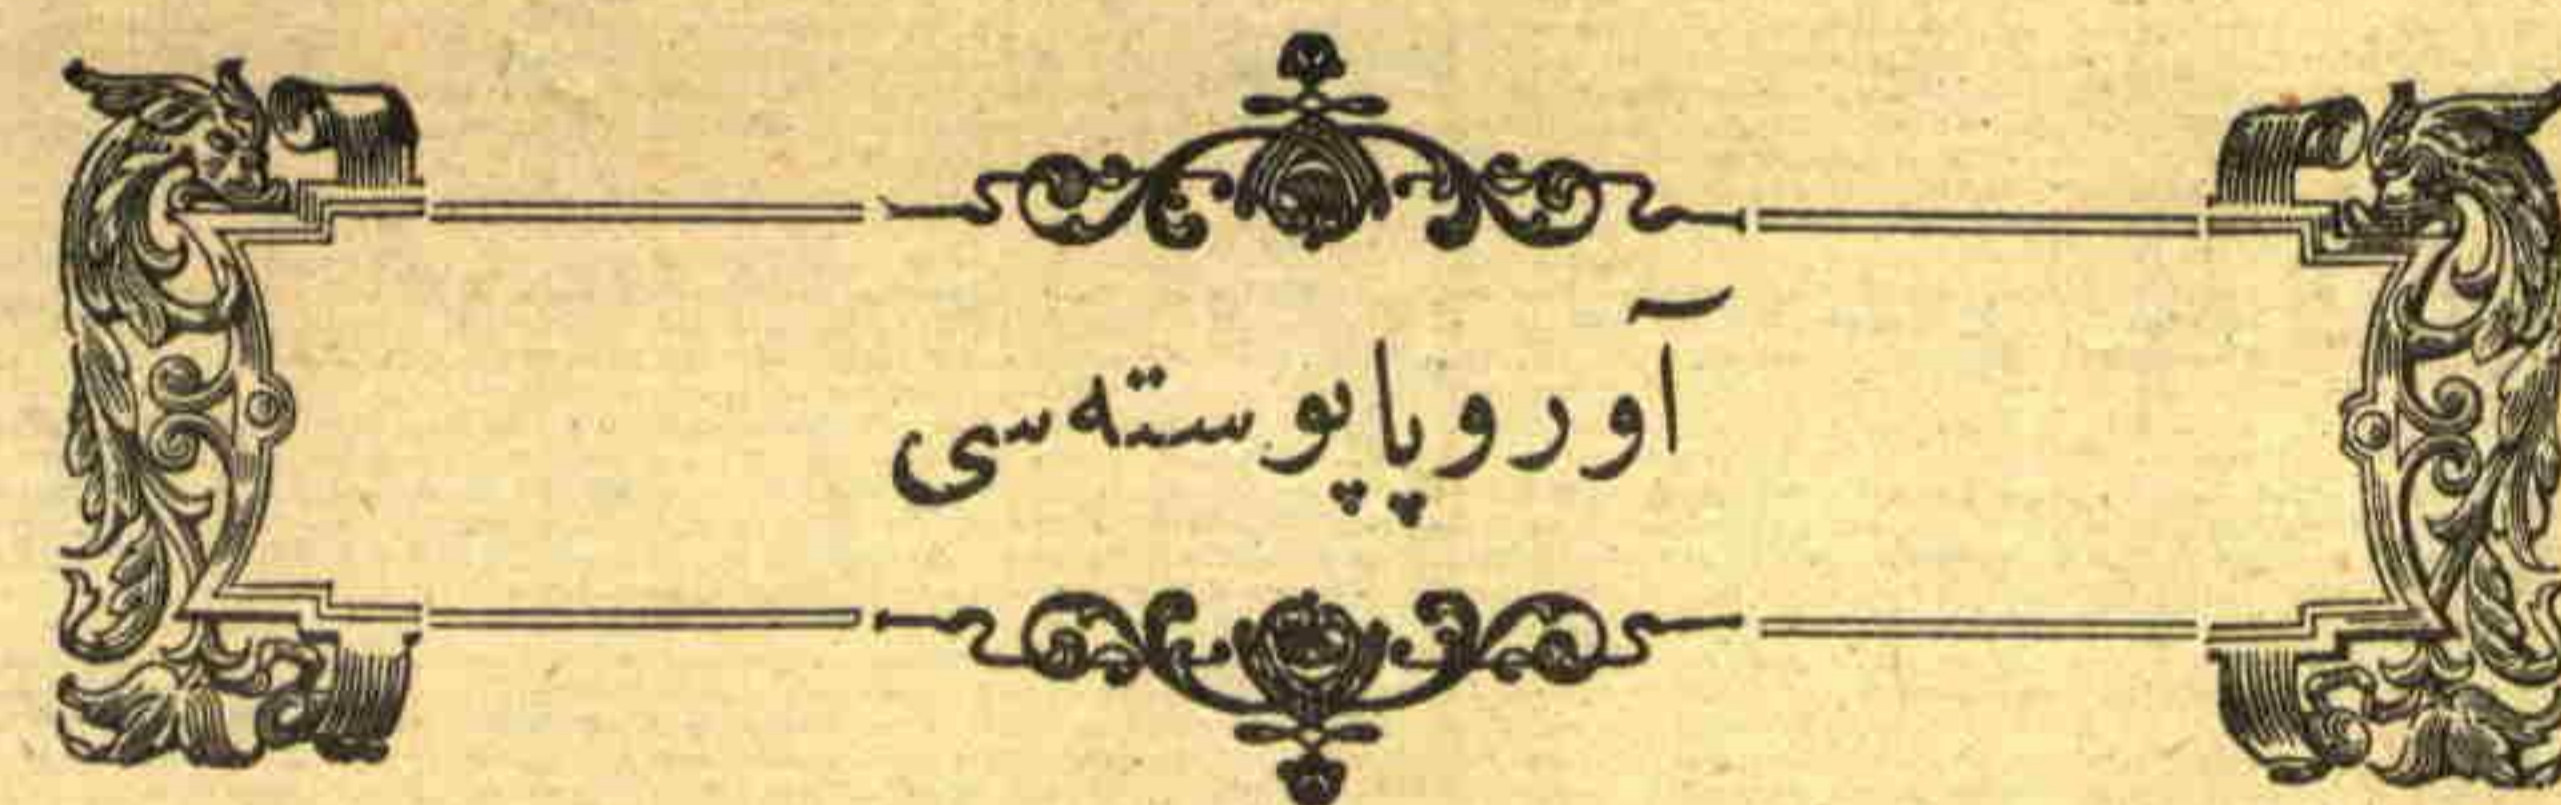 آوروپا پوسته‌سی